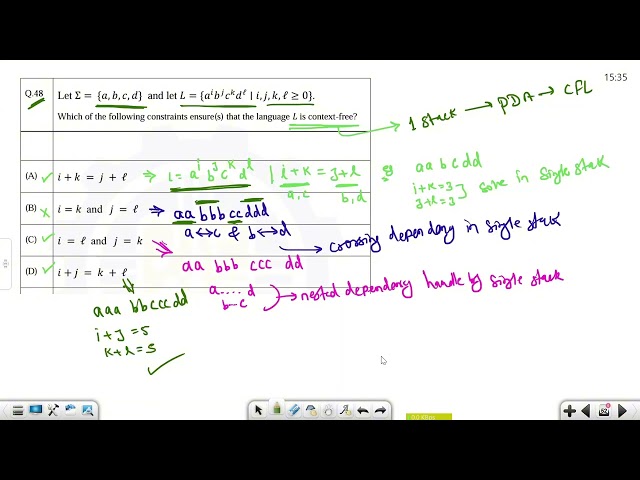 15:35
Q.48 Let Σ = {a, b, c, d} and let L = {aⁱbʲcᵏdˡ | i, j, k, ℓ ≥ 0}.
Which of the following constraints ensure(s) that the language L is context-free?
1 stack → PDA → CFL
(A) i + k = j + ℓ ⇒ L = aⁱ bʲ cᵏ dˡ | i+k = j+l
a,c b,d
eg aabcdd
i+k=3
j+k=3 } solve in single stack
(B) i = k and j = ℓ ⇒ aa bbb cc ddd
a↔c & b↔d → crossing dependancy in single stack
(C) i = ℓ and j = k
aa bbb ccc dd
a.....d
b—c → nested dependancy handle by single stack
(D) i + j = k + ℓ
aaa bb ccc dd
i+j=5
k+l=5